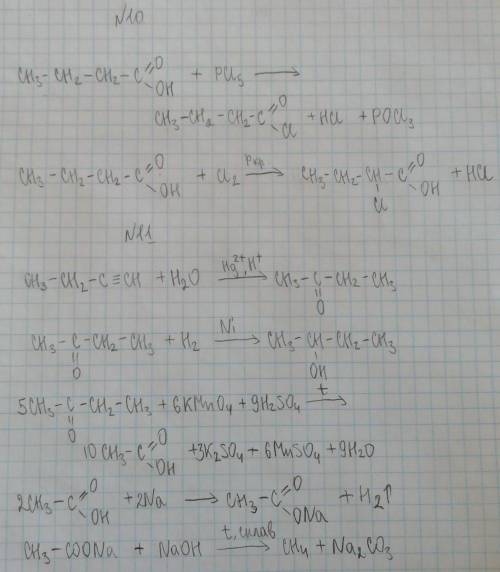 N10
CH3-CH2-CH2-C=O OH + PCl5 ⟶
CH3-CH2-CH2-C=O Cl + HCl + POCl3
CH3-CH2-CH2-C=O OH + Cl2 Pкр⟶ CH3-CH2-CH-C=O OH Cl + HCl
N11
CH3-CH2-C≡CH + H2O Hg2+, H+⟶ CH3-C-CH2-CH3 =O
CH3-C-CH2-CH3 =O + H2 Ni⟶ CH3-CH-CH2-CH3 OH
5CH3-C-CH2-CH3 =O + 6KMnO4 + 9H2SO4 t⟶
10CH3-C=O OH + 3K2SO4 + 6MnSO4 + 9H2O
2CH3-C=O OH + 2Na ⟶ CH3-C=O ONa + H2↑
CH3-COONa + NaOH t, сплав⟶ CH4 + Na2CO3